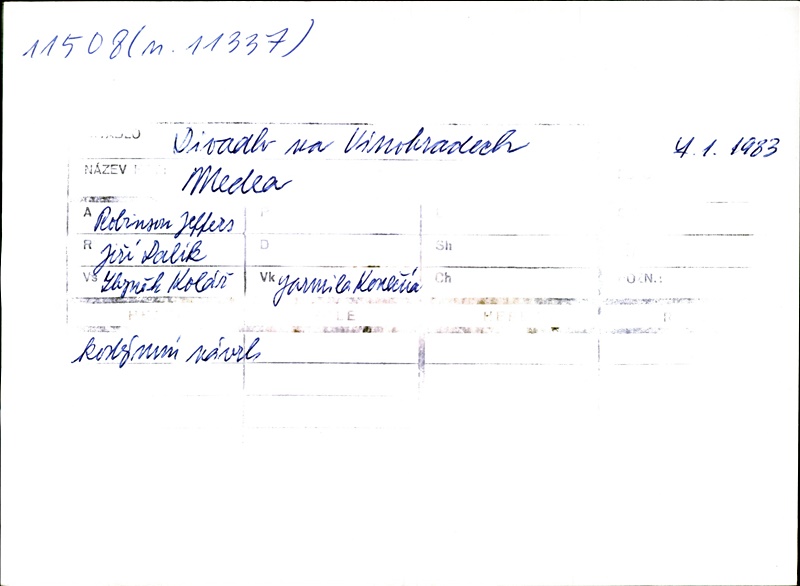 11508 (n. 11337)
Divadlo na Vinohradech 4.1.1983
NÁZEV Medea
A Robinson Jeffers
R Jiří Dalík D Sh
Vs Zbyněk Kolář Vk Jarmila Konečná Ch
kostýmní návrh